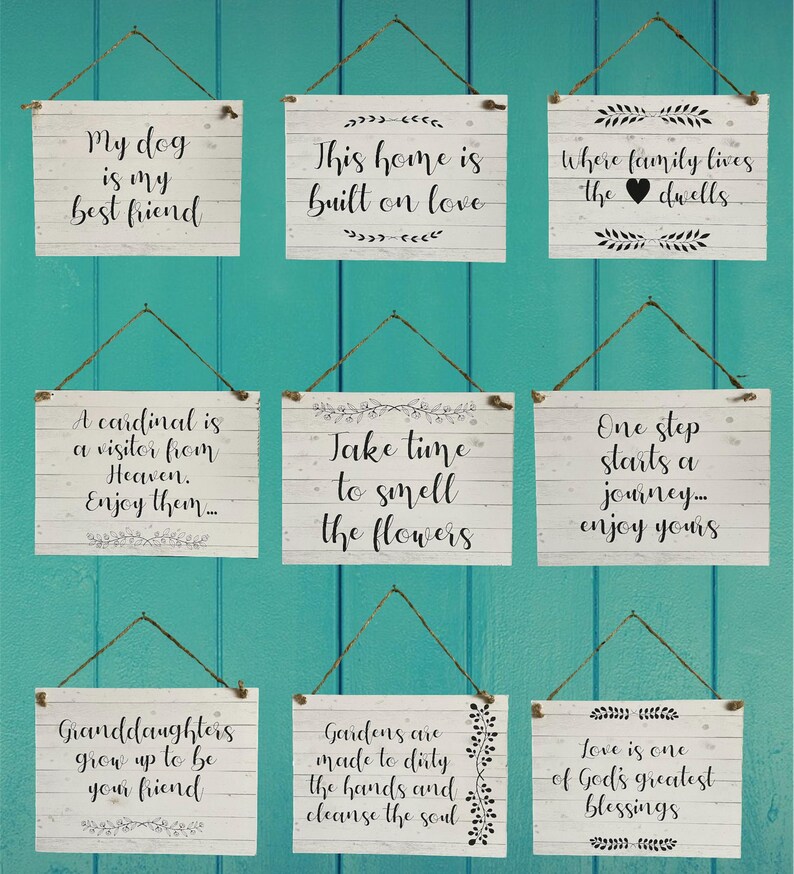 My dog
is my
best friend
This home is
built on love
Where family lives
the ♥ dwells
A cardinal is
a visitor from
Heaven.
Enjoy them...
Take time
to smell
the flowers
One step
starts a
journey...
enjoy yours
Granddaughters
grow up to be
your friend
Gardens are
made to dirty
the hands and
cleanse the soul
Love is one
of God's greatest
blessings